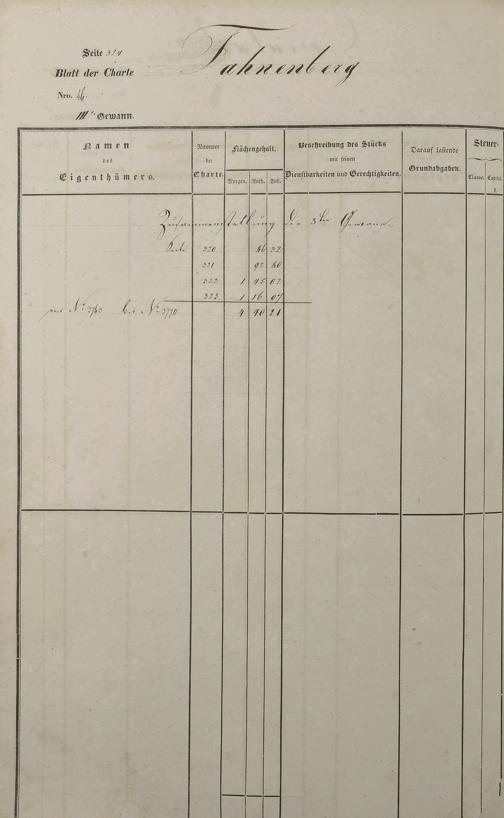 Seite 324
Fahnenberg
Blatt der Charte
Nro. 46
IIIte Gewann.
Namen des Eigenthümers.
Nummer der Charte.
Flächengehalt.
Morgen. Ruth. Fuß.
Beschreibung des Stücks mit seinen Dienstbarkeiten und Gerechtigkeiten.
Darauf lastende Grundabgaben.
Steuer-
Classe. Capital.
f.
Zusammenstellung der 3ten Gewann.
Seite 320 86 32
321 92 80
322 1 45 02
323 1 16 07
bis No. 3770 4 40 21